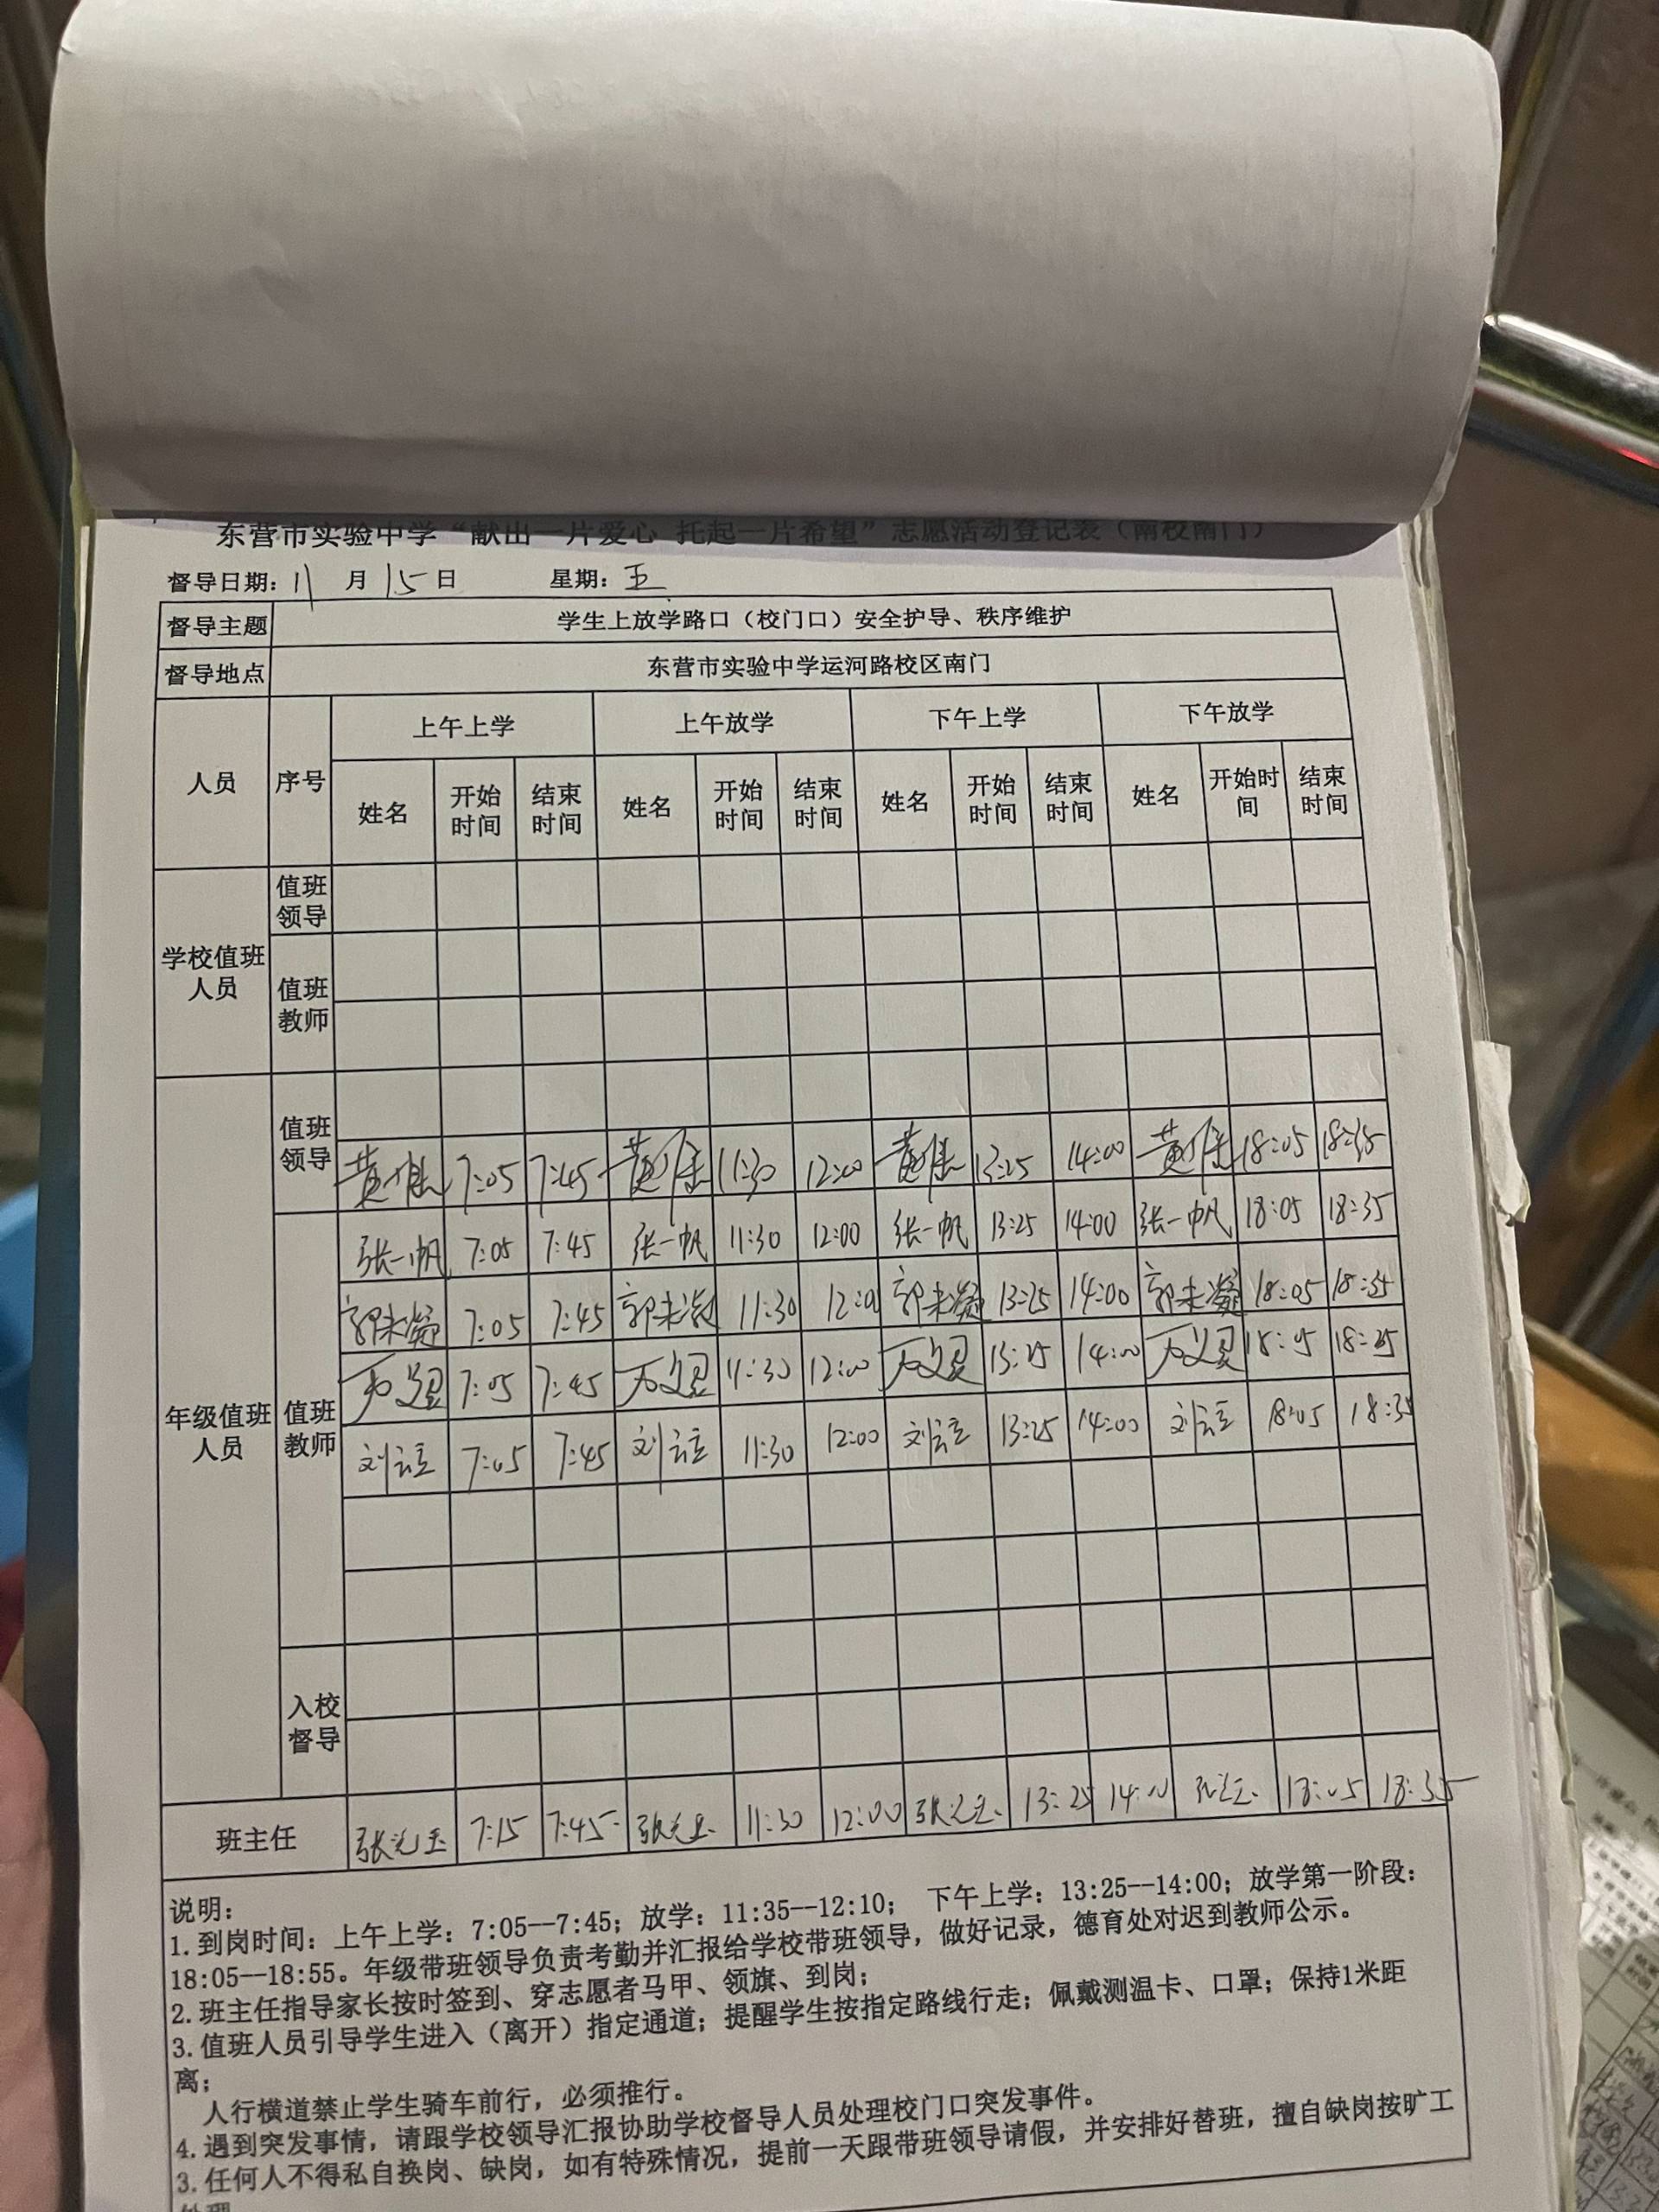 东营市实验中学“献出一片爱心 托起一片希望”志愿活动登记表（南校南门）
督导日期：11月15日 星期：五
督导主题 学生上放学路口（校门口）安全护导、秩序维护
督导地点 东营市实验中学运河路校区南门
人员 序号 上午上学 上午放学 下午上学 下午放学
姓名 开始时间 结束时间 姓名 开始时间 结束时间 姓名 开始时间 结束时间 姓名 开始时间 结束时间
学校值班人员 值班领导
值班教师
年级值班人员 值班领导
黄 7:05 7:45 黄 11:30 12:00 黄 13:25 14:00 黄 18:05 18:35
值班教师
张一帆 7:05 7:45 张一帆 11:30 12:00 张一帆 13:25 14:00 张一帆 18:05 18:35
郭未凝 7:05 7:45 郭未凝 11:30 郭未凝 13:25 14:00 郭未凝 18:05 18:35
7:05 7:45 11:30 12:00 13:25 14:00 18:05
刘 7:05 7:45 刘 11:30 12:00 刘 13:25 14:00 刘 18:05 18:35
入校督导
班主任 张 7:15 7:45 张 11:30 12:00 张 13:25 14:00 张 18:05 18:35
说明：
1.到岗时间：上午上学：7:05--7:45；放学：11:35--12:10； 下午上学：13:25--14:00；放学第一阶段：
18:05--18:55。年级带班领导负责考勤并汇报给学校带班领导，做好记录，德育处对迟到教师公示。
2.班主任指导家长按时签到、穿志愿者马甲、领旗、到岗；
3.值班人员引导学生进入（离开）指定通道；提醒学生按指定路线行走；佩戴测温卡、口罩；保持1米距
离；
人行横道禁止学生骑车前行，必须推行。
4.遇到突发事情，请跟学校领导汇报协助学校督导人员处理校门口突发事件。
3.任何人不得私自换岗、缺岗，如有特殊情况，提前一天跟带班领导请假，并安排好替班，擅自缺岗按旷工
处理